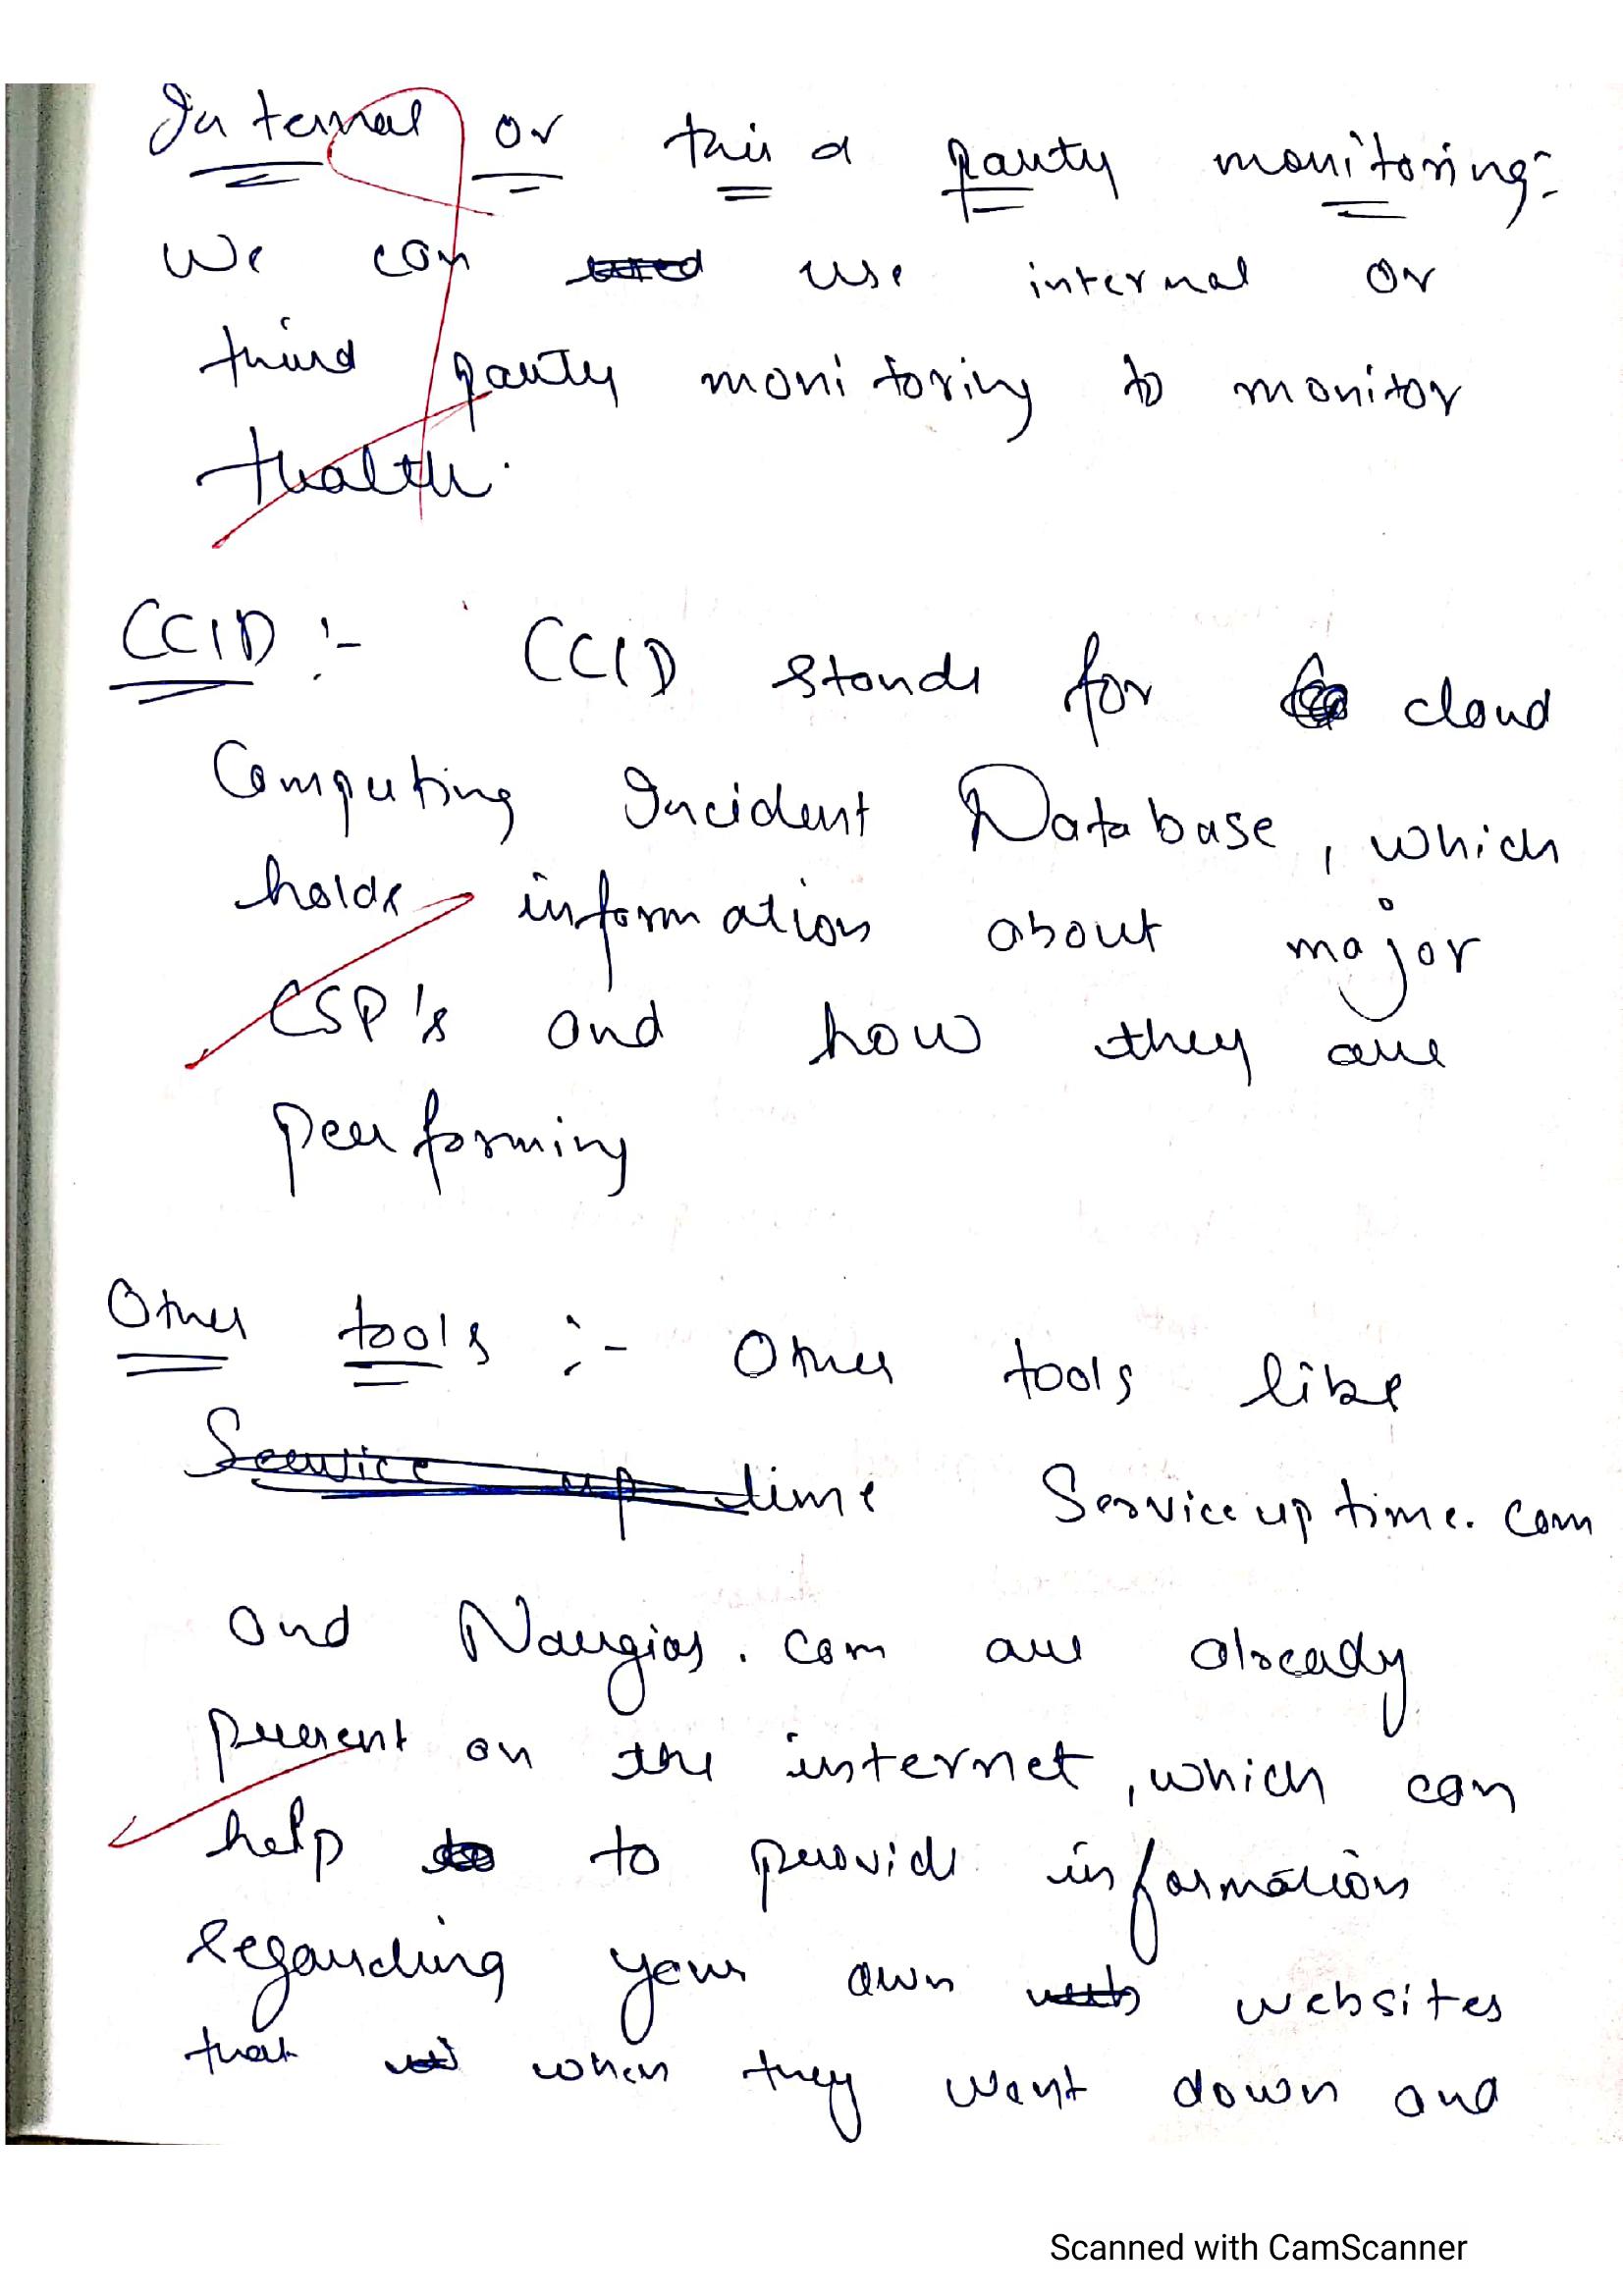 Internal or third party monitoring:-
We can used use internal or
third party monitoring to monitor
thealth.
CCID :- CCID stands for cloud
Computing Incident Database, which
holds information about major
CSP's and how they are
performing
Other tools :- Other tools like
Service up time Serviceuptime.com
and Naugios.com are already
present on the internet, which can
help to to provide information
regarding your own websites
that when they went down and
Scanned with CamScanner